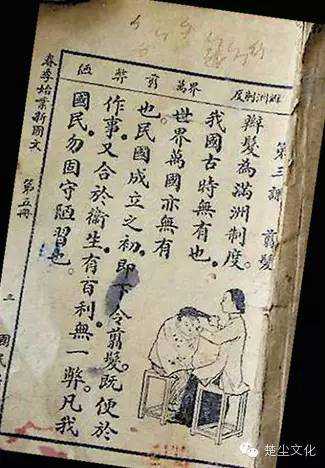 第三課 翦髮
辮髮為滿洲制度。
我國古時無有也。
世界萬國亦無有
也。民國成立之初。即下令翦髮。既便於
作事。又合於衞生。有百利。無一弊。凡我
國民。勿固守陋習也。
春季始業新國文 第五冊 三 國民
楚尘文化